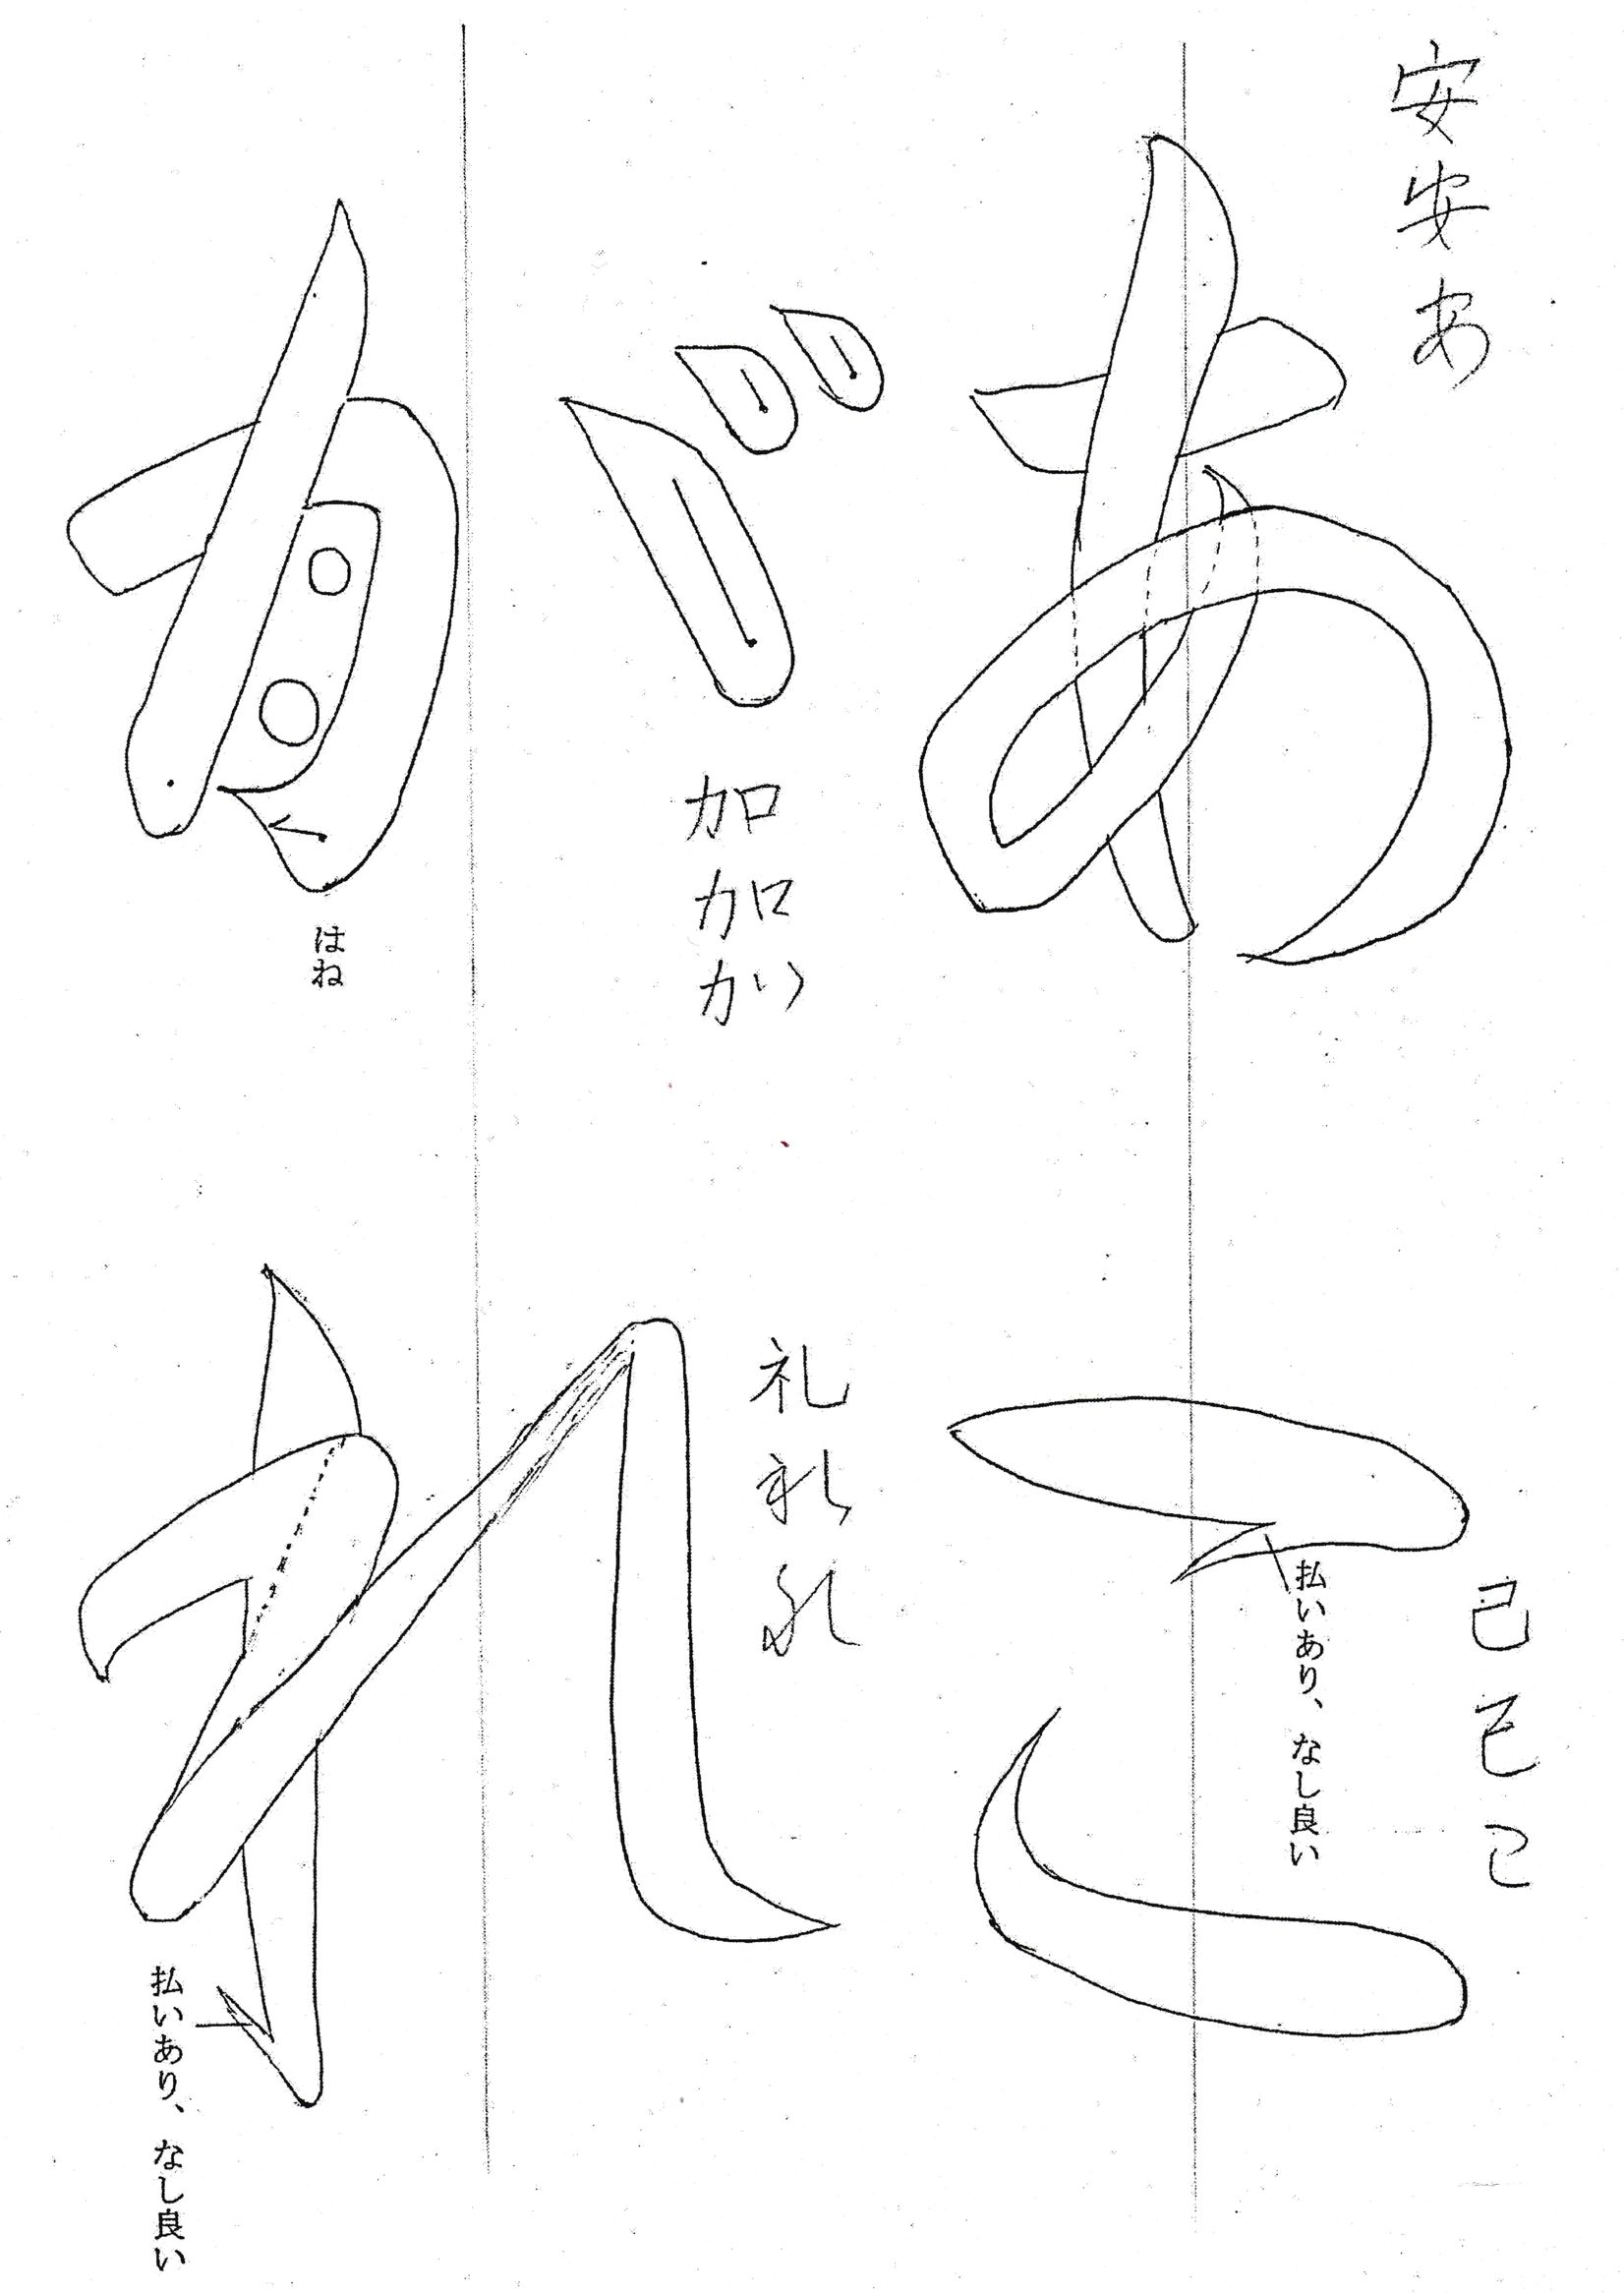 安安あ
あこ
払いあり、なし良い
己己こ
がれ
加加か
礼礼れ
はね
払いあり、なし良い